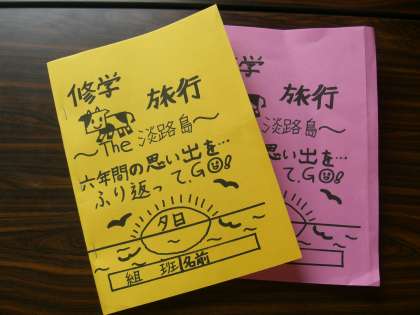 修学 旅行
～The 淡路島～
六年間の思い出を…
ふり返って、GO!
夕日
組 班 名前
学 旅行
淡路島～
思い出を…
て、GO!